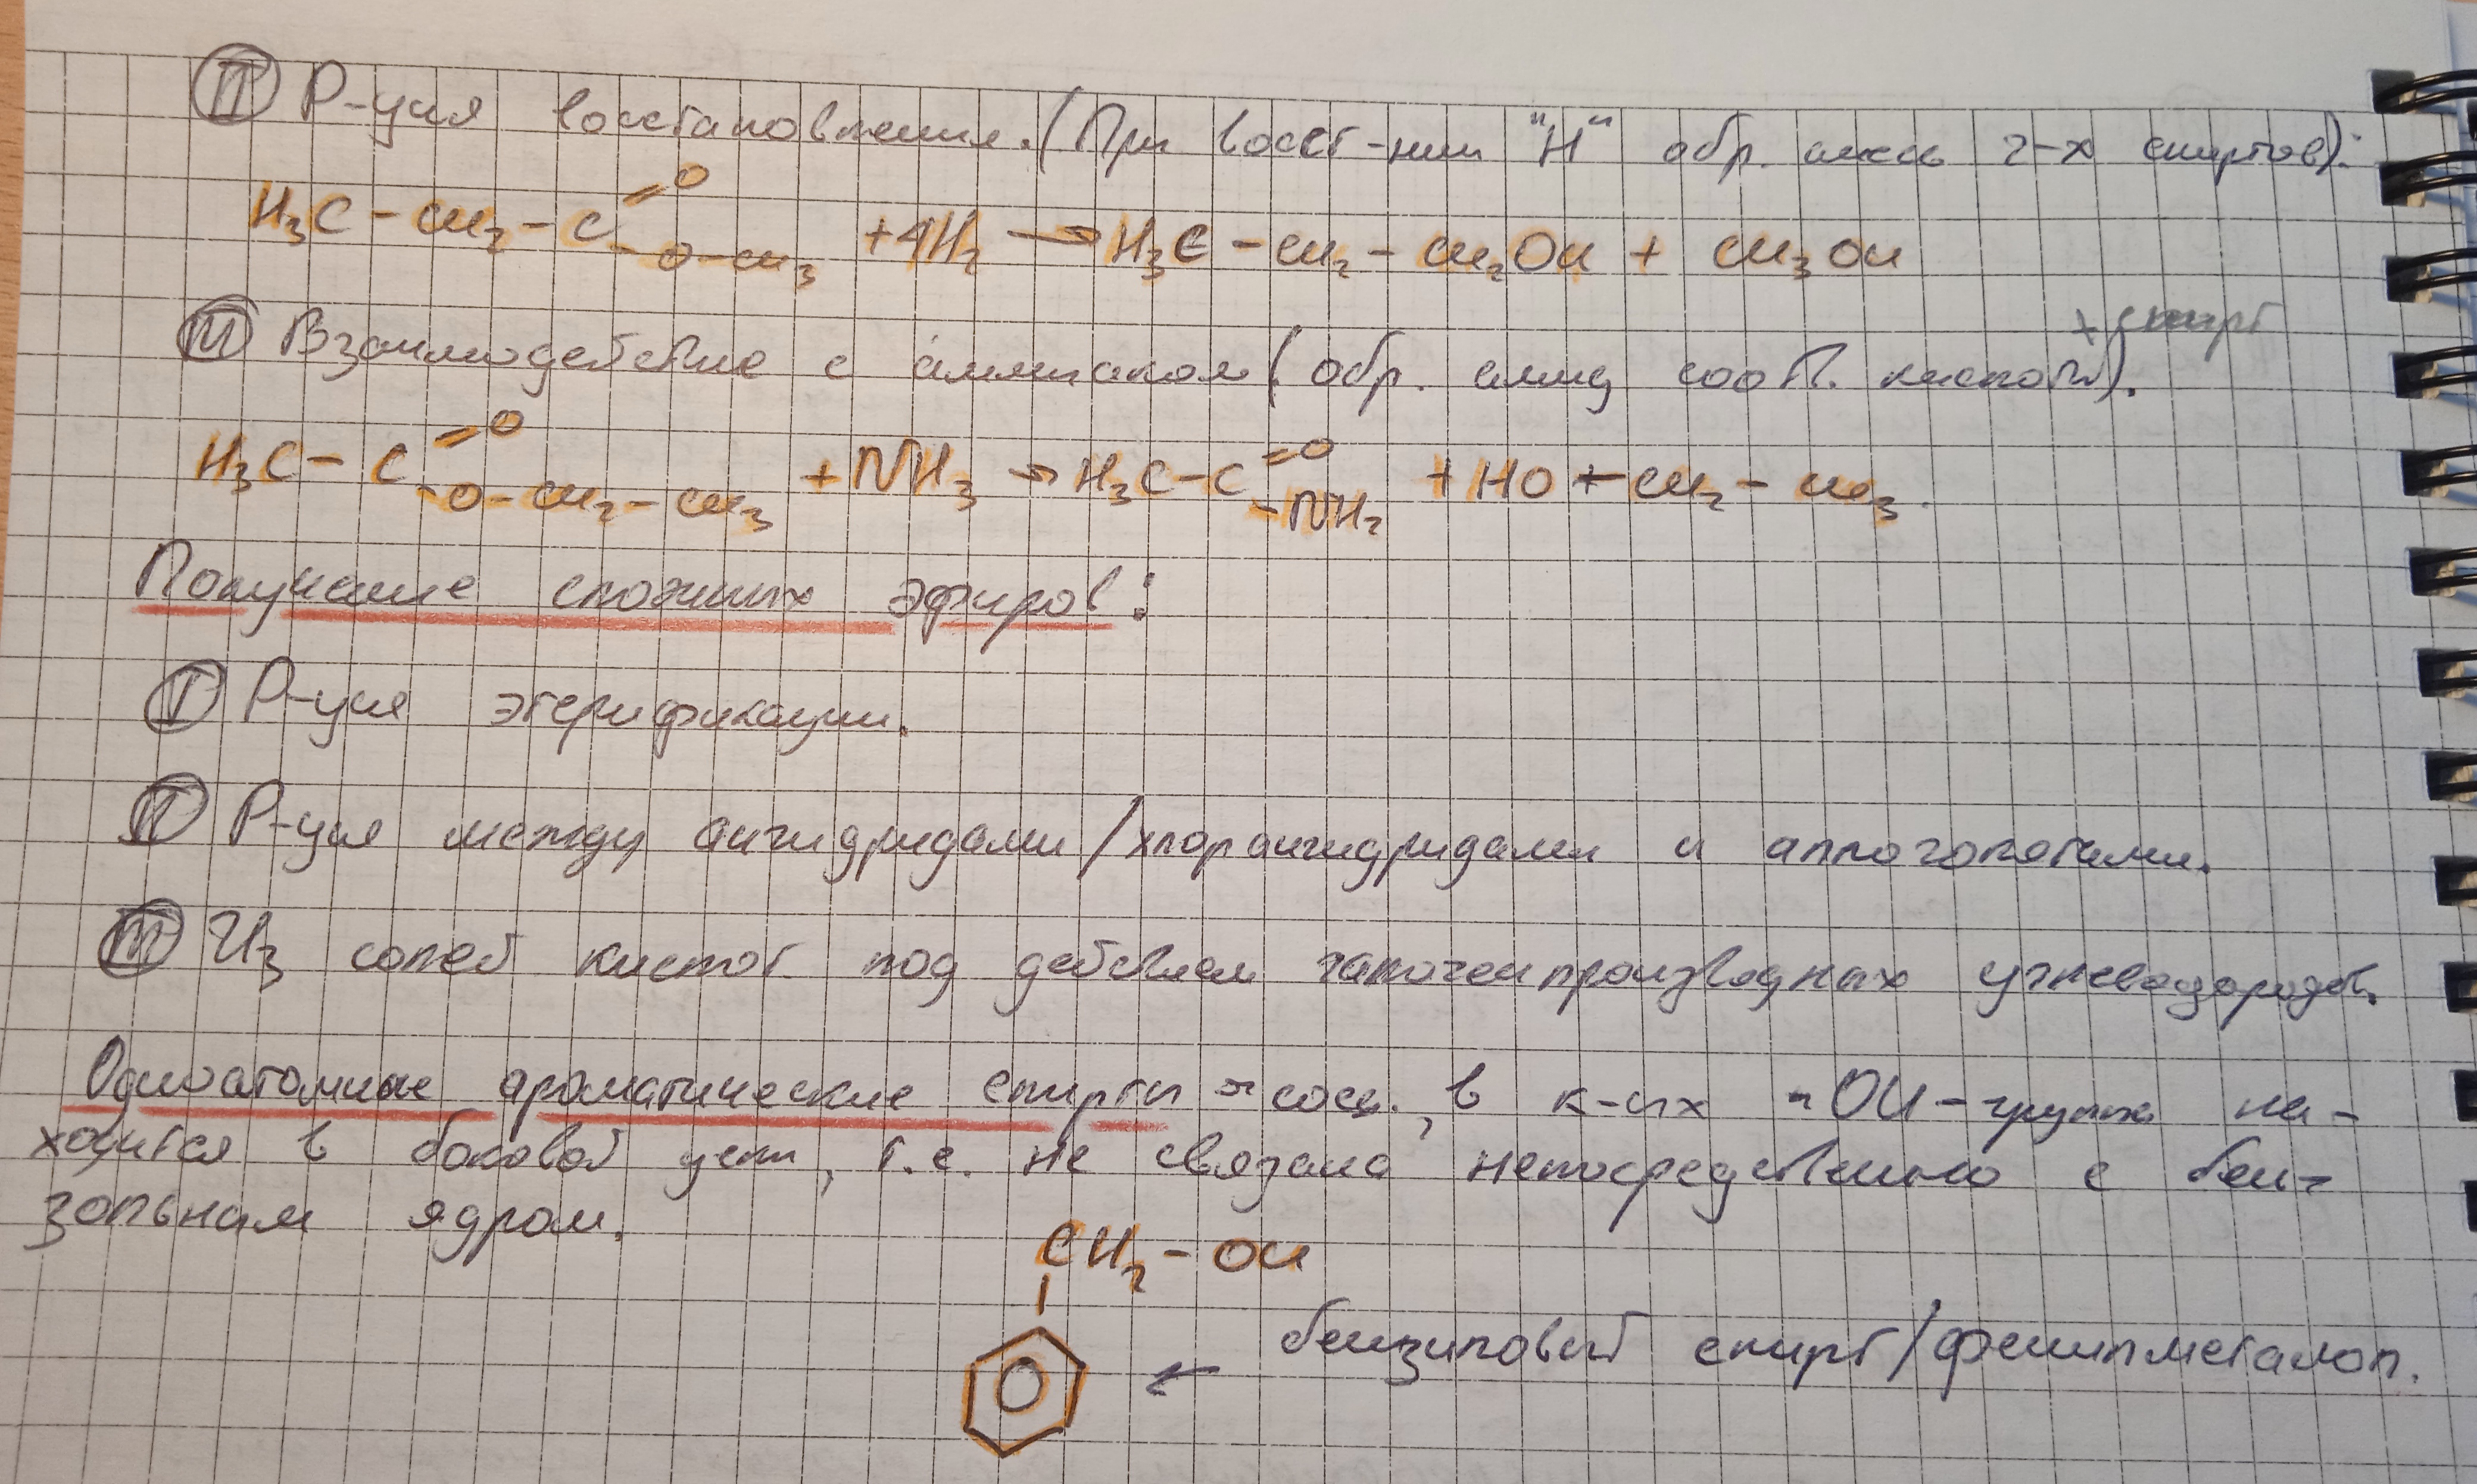 II Р-ция восстановления. (При восст-нии "H" обр. смесь 2-х спиртов):
H₃C - CH₂ - C =O -O-CH₃ + 4H₂ → H₃C - CH₂ - CH₂OH + CH₃OH
+ спирт
III Взаимодействие с аммиаком (обр. амид соотв. кислоты).
H₃C - C =O -O-CH₂-CH₃ + NH₃ → H₃C-C =O -NH₂ + HO - CH₂ - CH₃.
Получение сложных эфиров:
I Р-ция этерификации.
II Р-ция между ангидридами/хлорангидридами и алкоголятами.
III Из солей кислот под действием галогенпроизводных углеводородов.
Одноатомные ароматические спирты - соед., в к-ых -OH-группа на-
ходится в боковой цепи, т.е. не связана непосредственно с бен-
зольным ядром.
CH₂ - OH
← бензиловый спирт/фенилметанол.